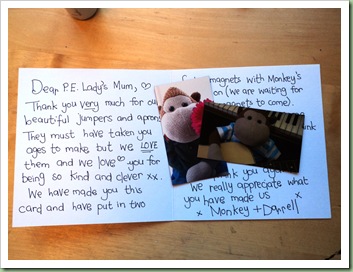 Dear P.E. Lady's Mum, ♡
Thank you very much for our
beautiful jumpers and aprons
They must have taken you
ages to make but we LOVE
them and we love ♡ you for
being so kind and clever xx.
We have made you this
card and have put in two
magnets with Monkey's
on (we are waiting for
magnets to come).
Thank you
We really appreciate what
you have made us x
x Monkey +